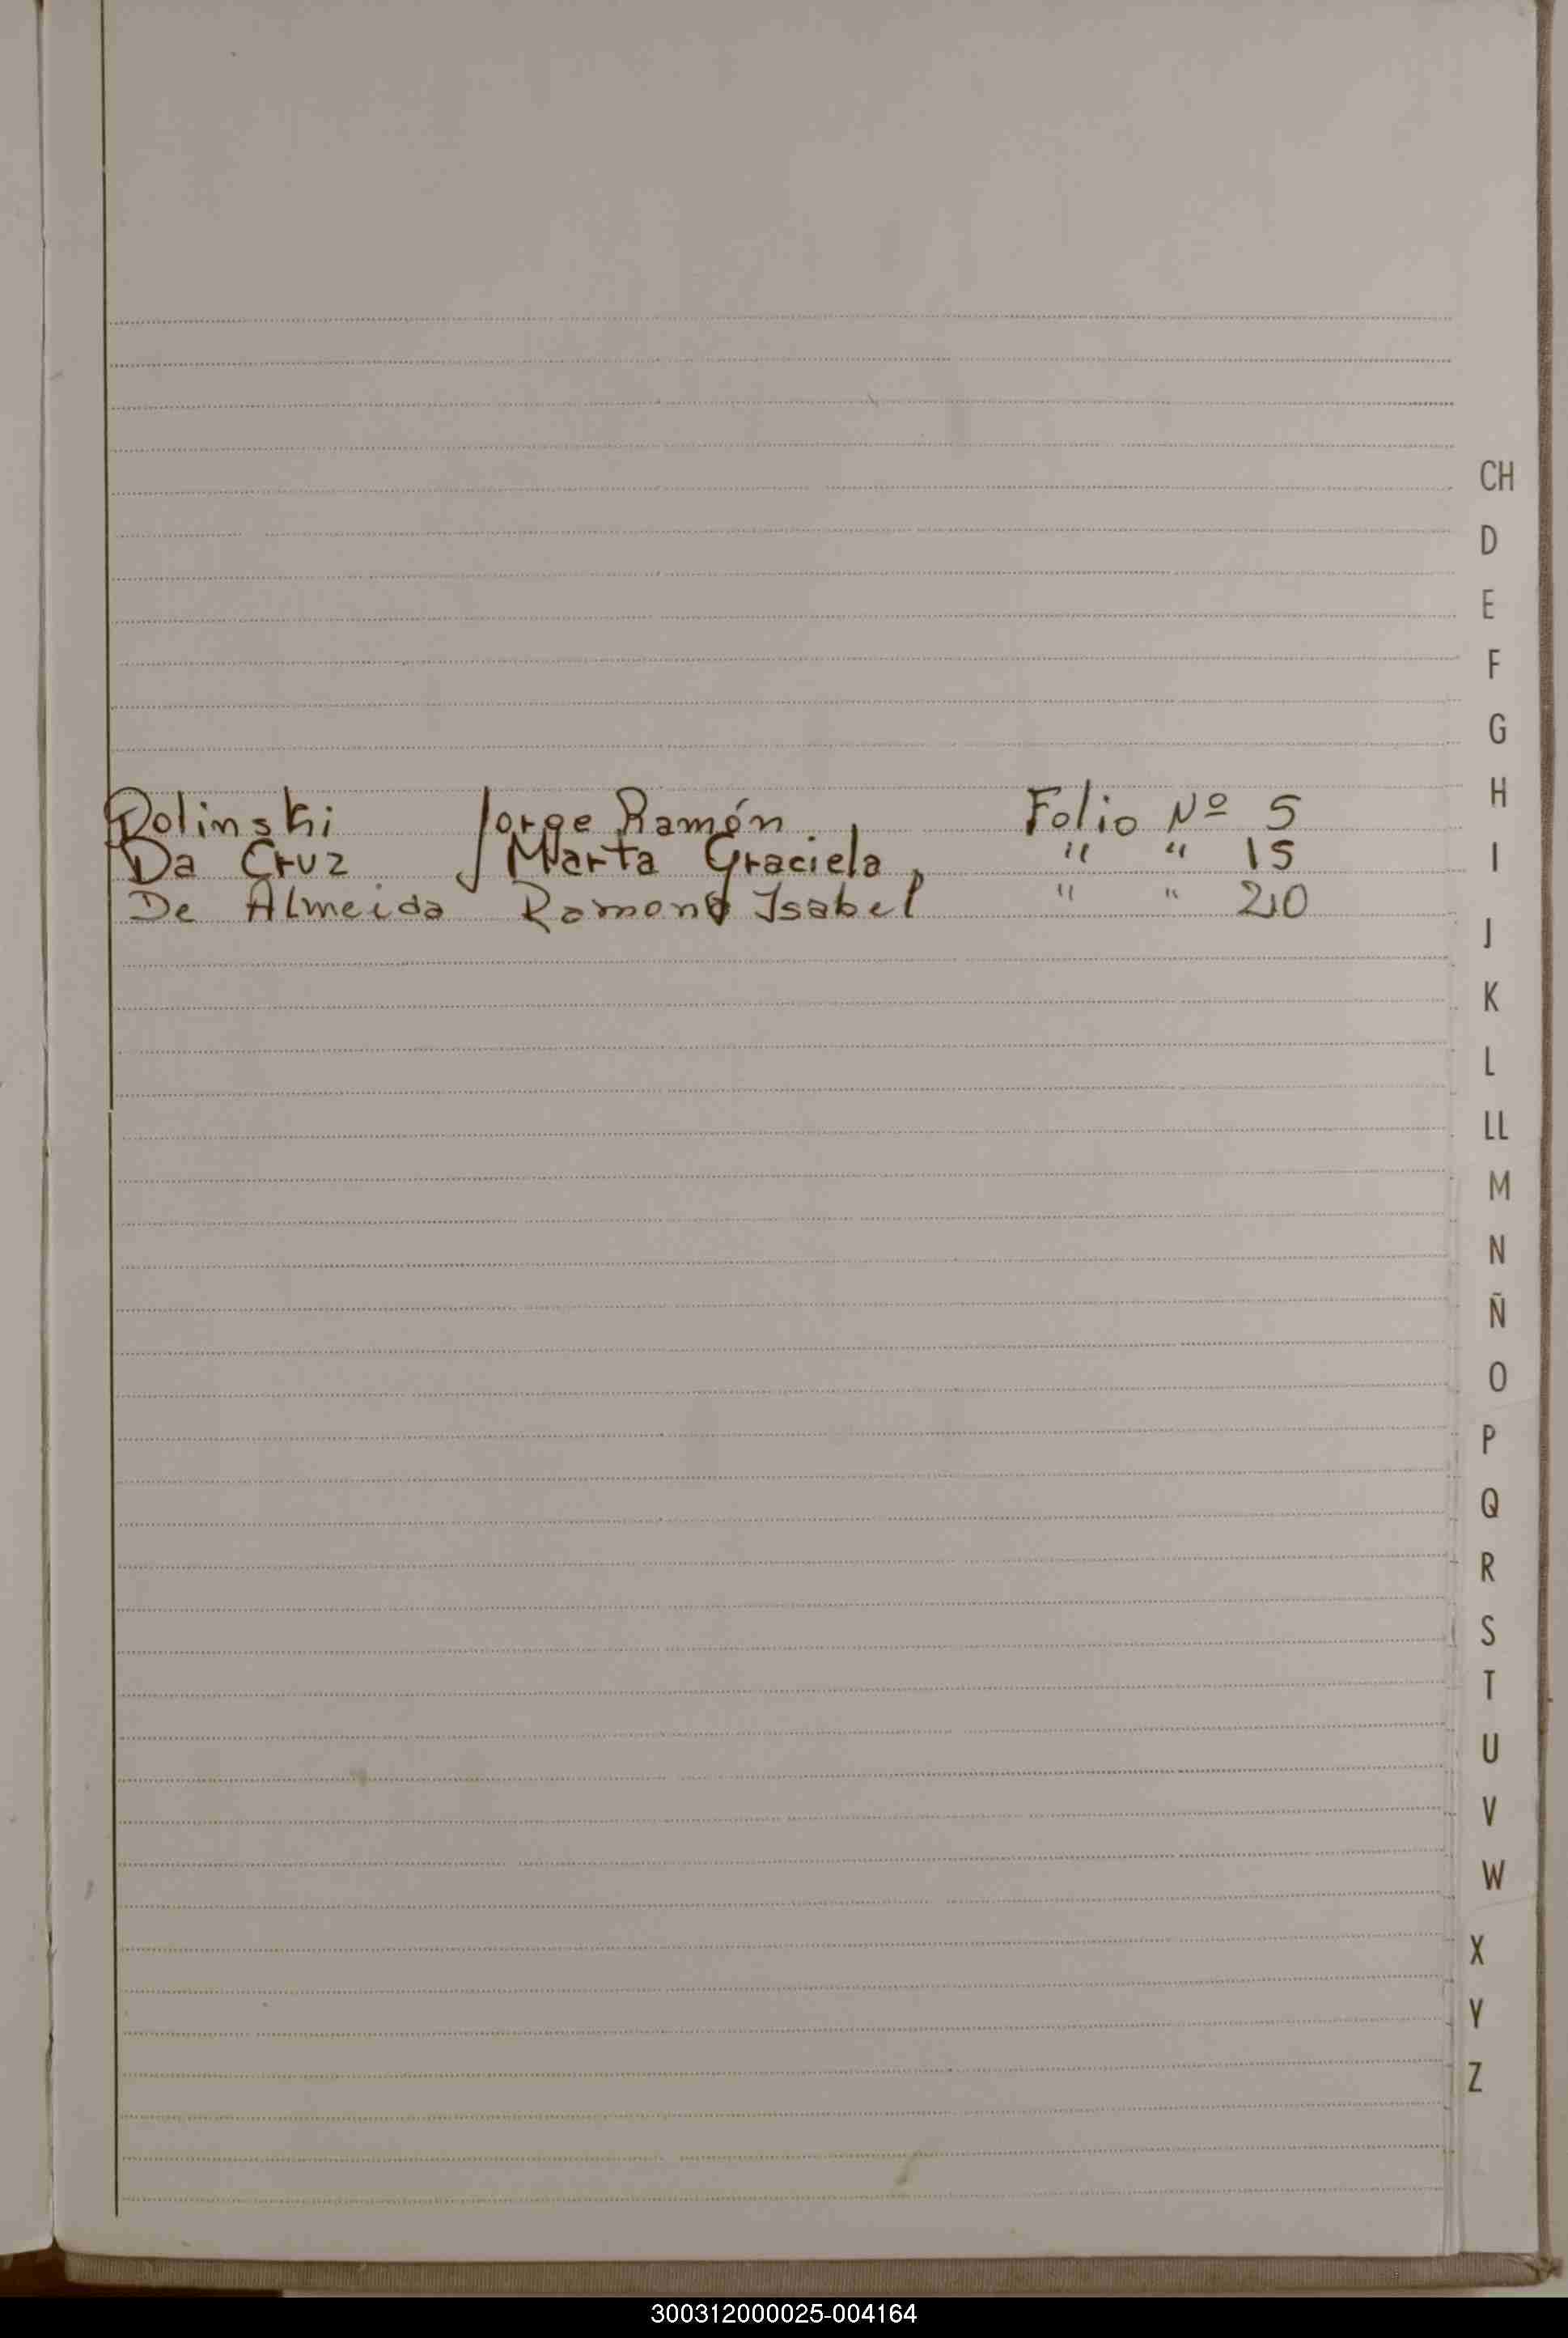 Dolinski Jorge Ramón Folio Nº 5
Da Cruz Marta Graciela " " 15
De Almeida Ramona Isabel " " 20
CH
D
E
F
G
H
I
J
K
L
LL
M
N
Ñ
O
P
Q
R
S
T
U
V
W
X
Y
Z
300312000025-004164